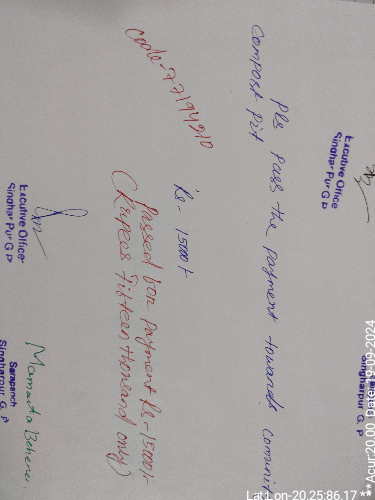 Executive Office
Singhar Pur G P
Singharpur G. P
Pls pass the payment towards
compost pit
Rs - 15000/-
code - 77194210
Passed for payment Rs - 15000/-
(Rupees Fifteen thousand only)
Executive Office
Singhar Pur G P
Mamata Behera
Sarapanch
Singharpur G. P
Lat Lon-20.25:86.17 **Acur:20.00 Date:19-09-2024